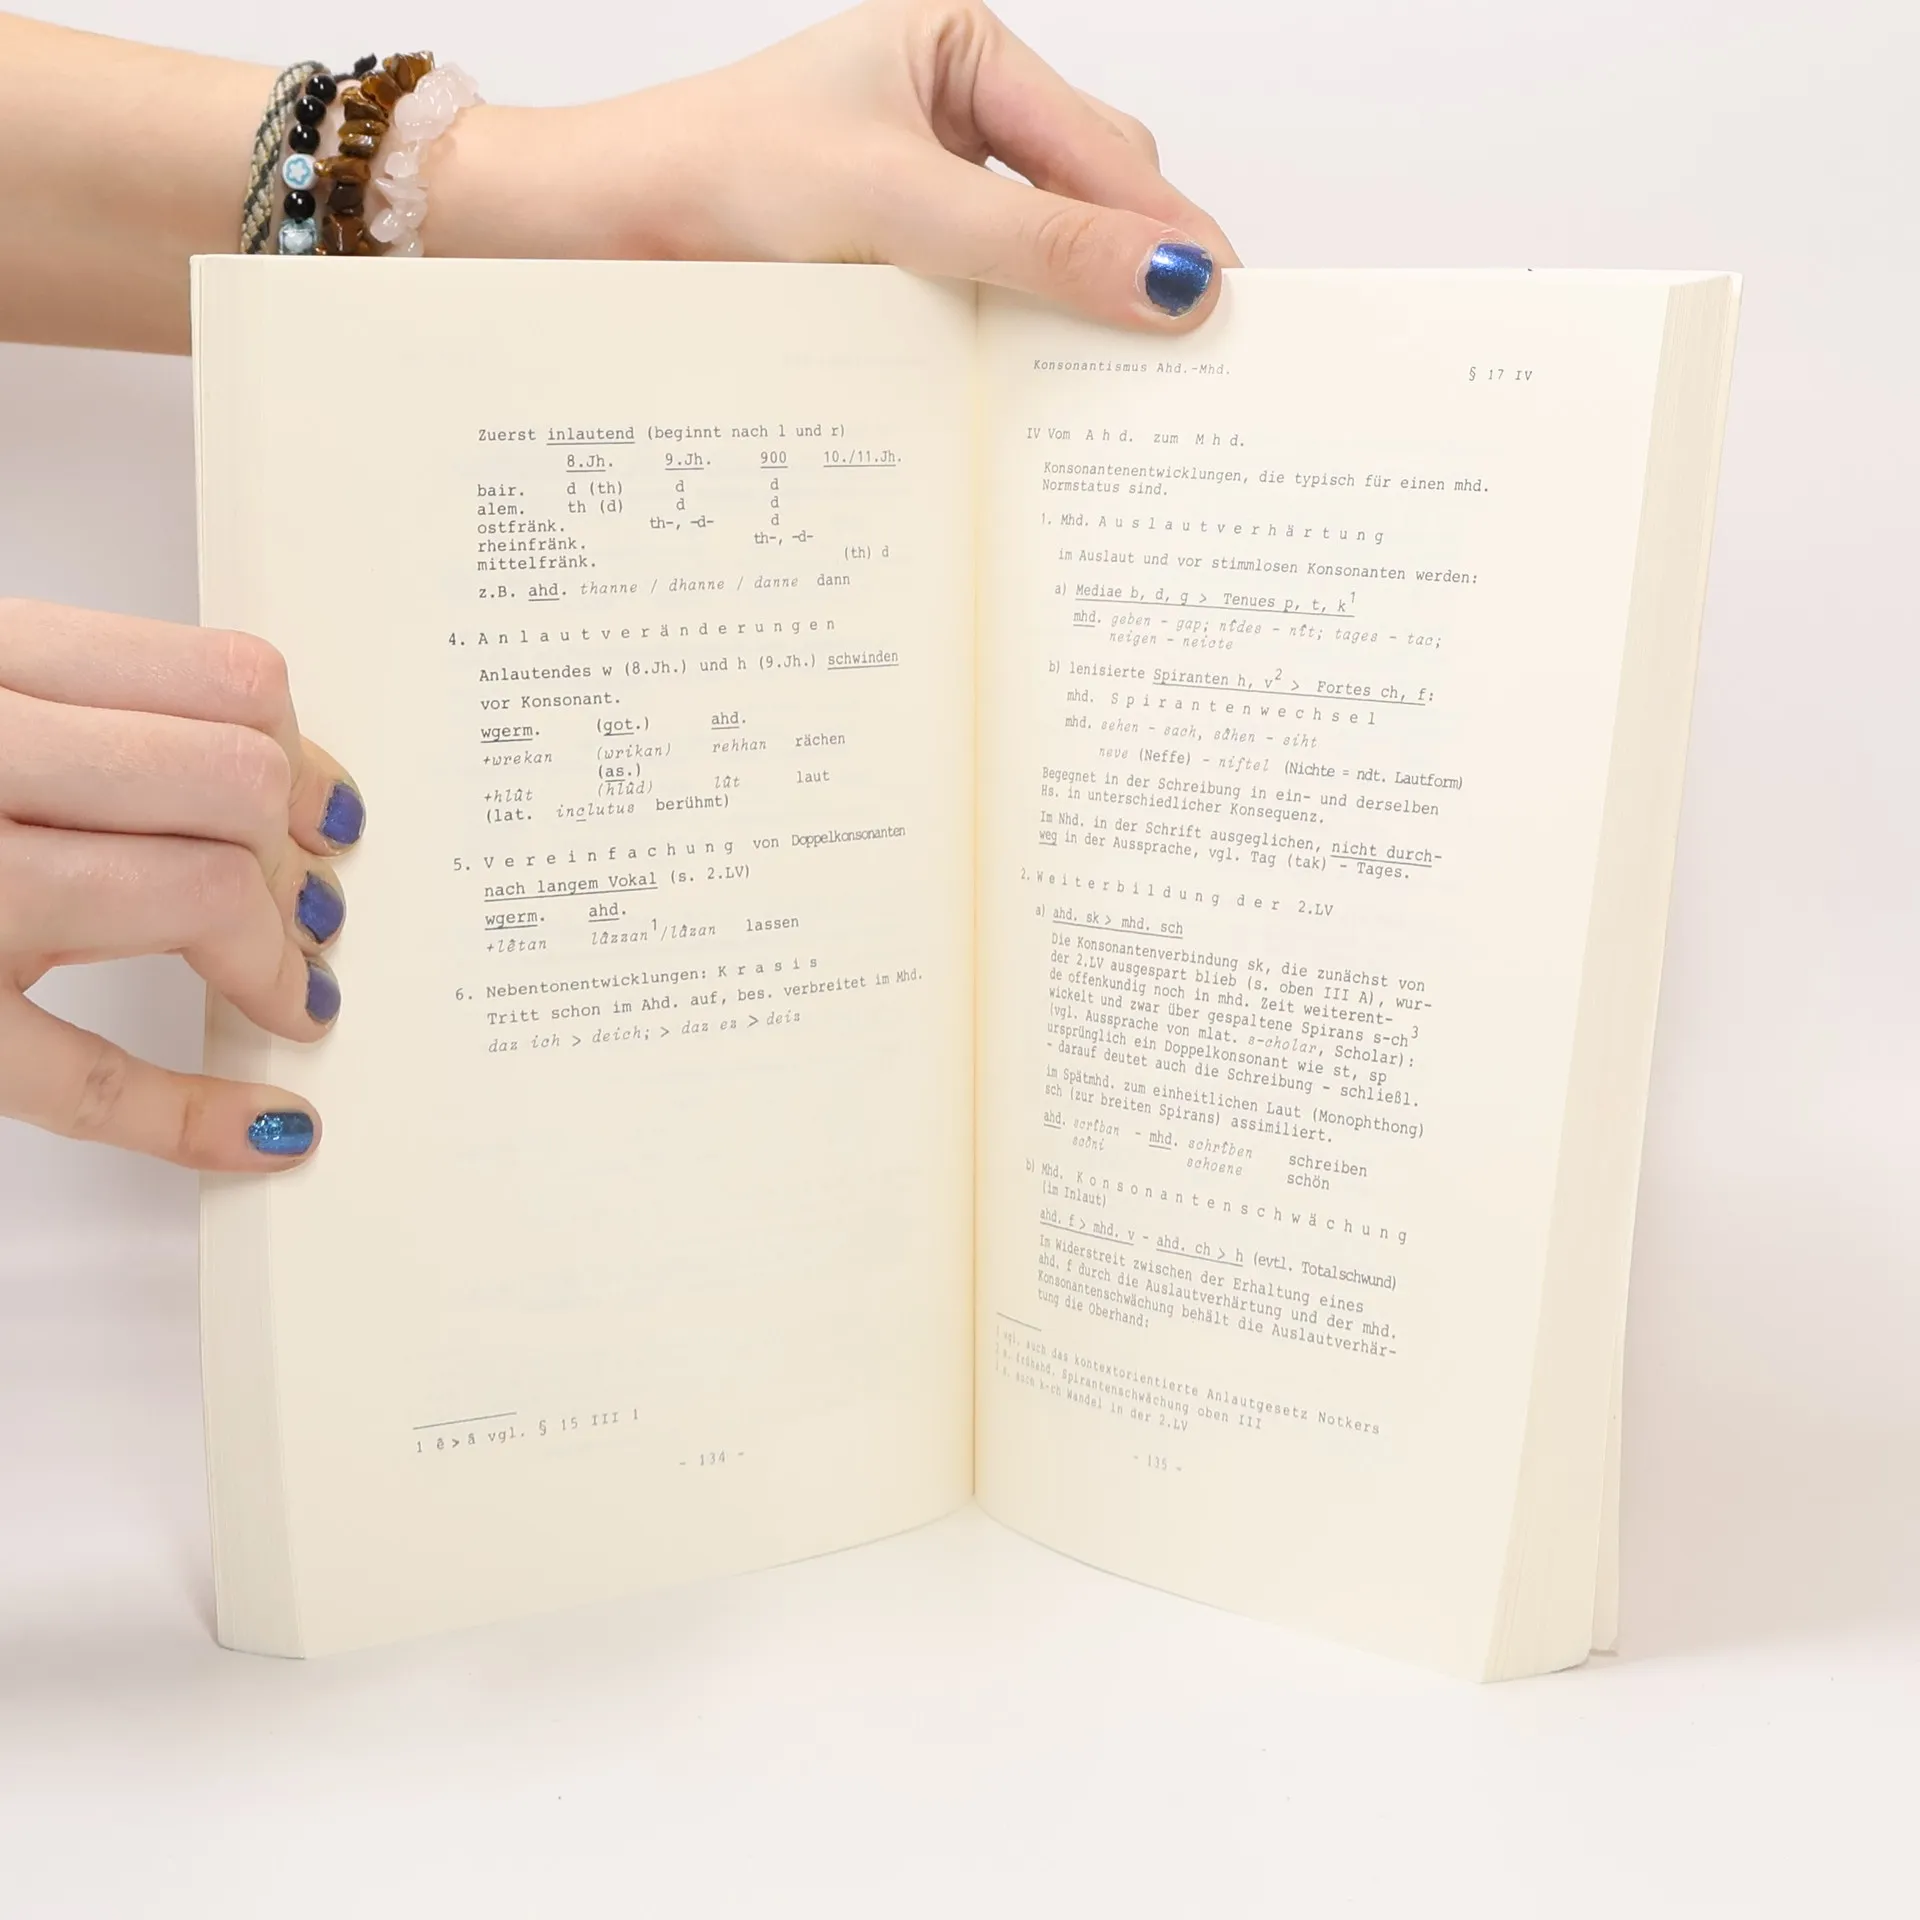 Zuerst inlautend (beginnt nach l und r)
8.Jh. 9.Jh. 900 10./11.Jh.
bair. d (th) d d
alem. th (d) d d
ostfränk. th-, -d- d
rheinfränk. th-, -d-
mittelfränk. (th) d
z.B. ahd. thanne / dhanne / danne dann
4. Anlautveränderungen
Anlautendes w (8.Jh.) und h (9.Jh.) schwinden
vor Konsonant.
wgerm. (got.) ahd.
+wrekan (wrikan) rehhan rächen
(as.)
+hlût (hlûd) lût laut
(lat. inclutus berühmt)
5. Vereinfachung von Doppelkonsonanten
nach langem Vokal (s. 2.LV)
wgerm. ahd.
+lêtan lâzzan1/lâzan lassen
6. Nebentonentwicklungen: Krasis
Tritt schon im Ahd. auf, bes. verbreitet im Mhd.
daz ich > deich; > daz ez > deiz
1 ê > â vgl. § 15 III 1
- 134 -
Konsonantismus Ahd.-Mhd. § 17 IV
IV Vom Ahd. zum Mhd.
Konsonantenentwicklungen, die typisch für einen mhd.
Normstatus sind.
1. Mhd. Auslautverhärtung
im Auslaut und vor stimmlosen Konsonanten werden:
a) Mediae b, d, g > Tenues p, t, k1
mhd. geben - gap; nîdes - nît; tages - tac;
neigen - neicte
b) lenisierte Spiranten h, v2 > Fortes ch, f:
mhd. Spirantenwechsel
mhd. sehen - sach, sâhen - siht
neve (Neffe) - niftel (Nichte = ndt. Lautform)
Begegnet in der Schreibung in ein- und derselben
Hs. in unterschiedlicher Konsequenz.
Im Nhd. in der Schrift ausgeglichen, nicht durch-
weg in der Aussprache, vgl. Tag (tak) - Tages.
2. Weiterbildung der 2.LV
a) ahd. sk > mhd. sch
Die Konsonantenverbindung sk, die zunächst von
der 2.LV ausgespart blieb (s. oben III A), wur-
de offenkundig noch in mhd. Zeit weiterent-
wickelt und zwar über gespaltene Spirans s-ch3
(vgl. Aussprache von mlat. s-cholar, Scholar):
ursprünglich ein Doppelkonsonant wie st, sp
- darauf deutet auch die Schreibung - schließl.
im Spätmhd. zum einheitlichen Laut (Monophthong)
sch (zur breiten Spirans) assimiliert.
ahd. scrîban - mhd. schrîben schreiben
scôni schoene schön
b) Mhd. Konsonantenschwächung
(im Inlaut)
ahd. f > mhd. v - ahd. ch > h (evtl. Totalschwund)
Im Widerstreit zwischen der Erhaltung eines
ahd. f durch die Auslautverhärtung und der mhd.
Konsonantenschwächung behält die Auslautverhär-
tung die Oberhand:
1 vgl. auch das kontextorientierte Anlautgesetz Notkers
2 s. frühahd. Spirantenschwächung oben III
3 s. auch k-ch Wandel in der 2.LV
- 135 -